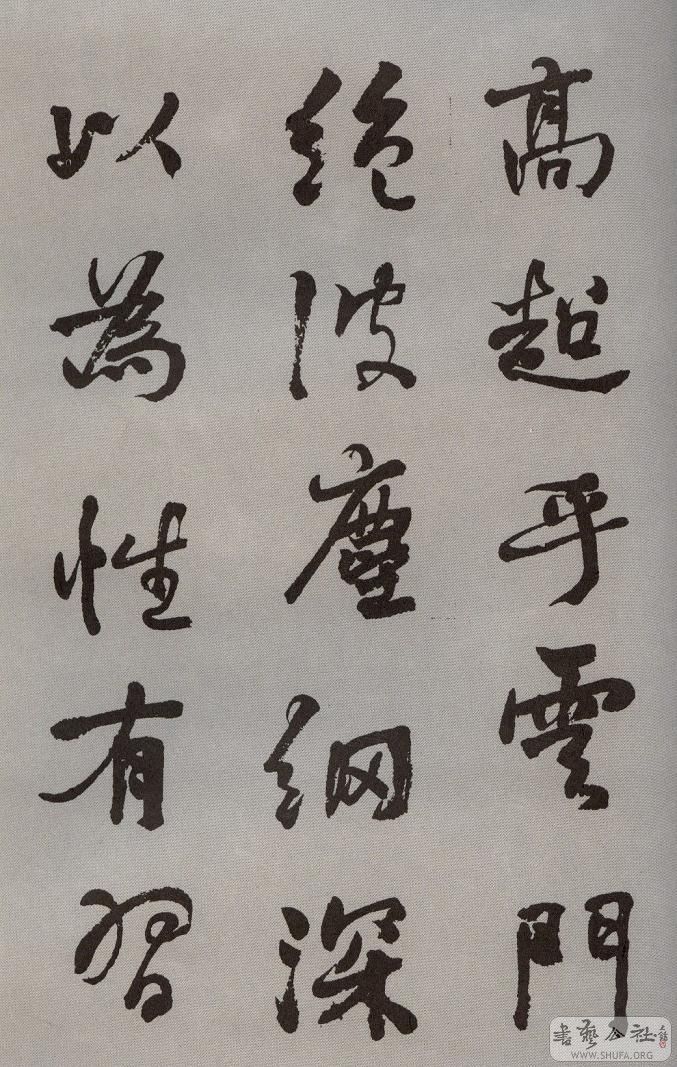 高超乎雲門
絶彼塵網深
以為性有習
書藝公社
WWW.SHUFA.ORG